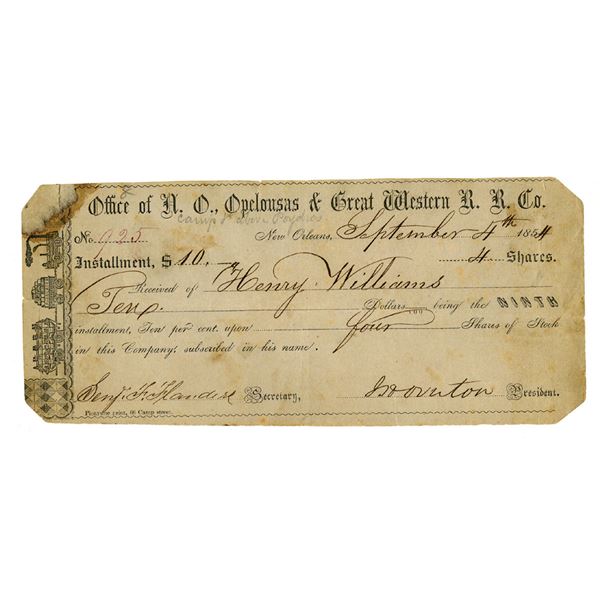 Office of N. O., Opelousas & Great Western R. R. Co.
Camp St above Poydras
No. 925 New Orleans, September 4th 1854
Installment, $ 10.— 4 Shares.
Received of Henry Williams
Ten Dollars /100 being the NINTH
installment, Ten per cent. upon four Shares of Stock
in this Company, subscribed in his name.
Benj. F. Flanders Secretary, President.
Picayune print, 66 Camp street.